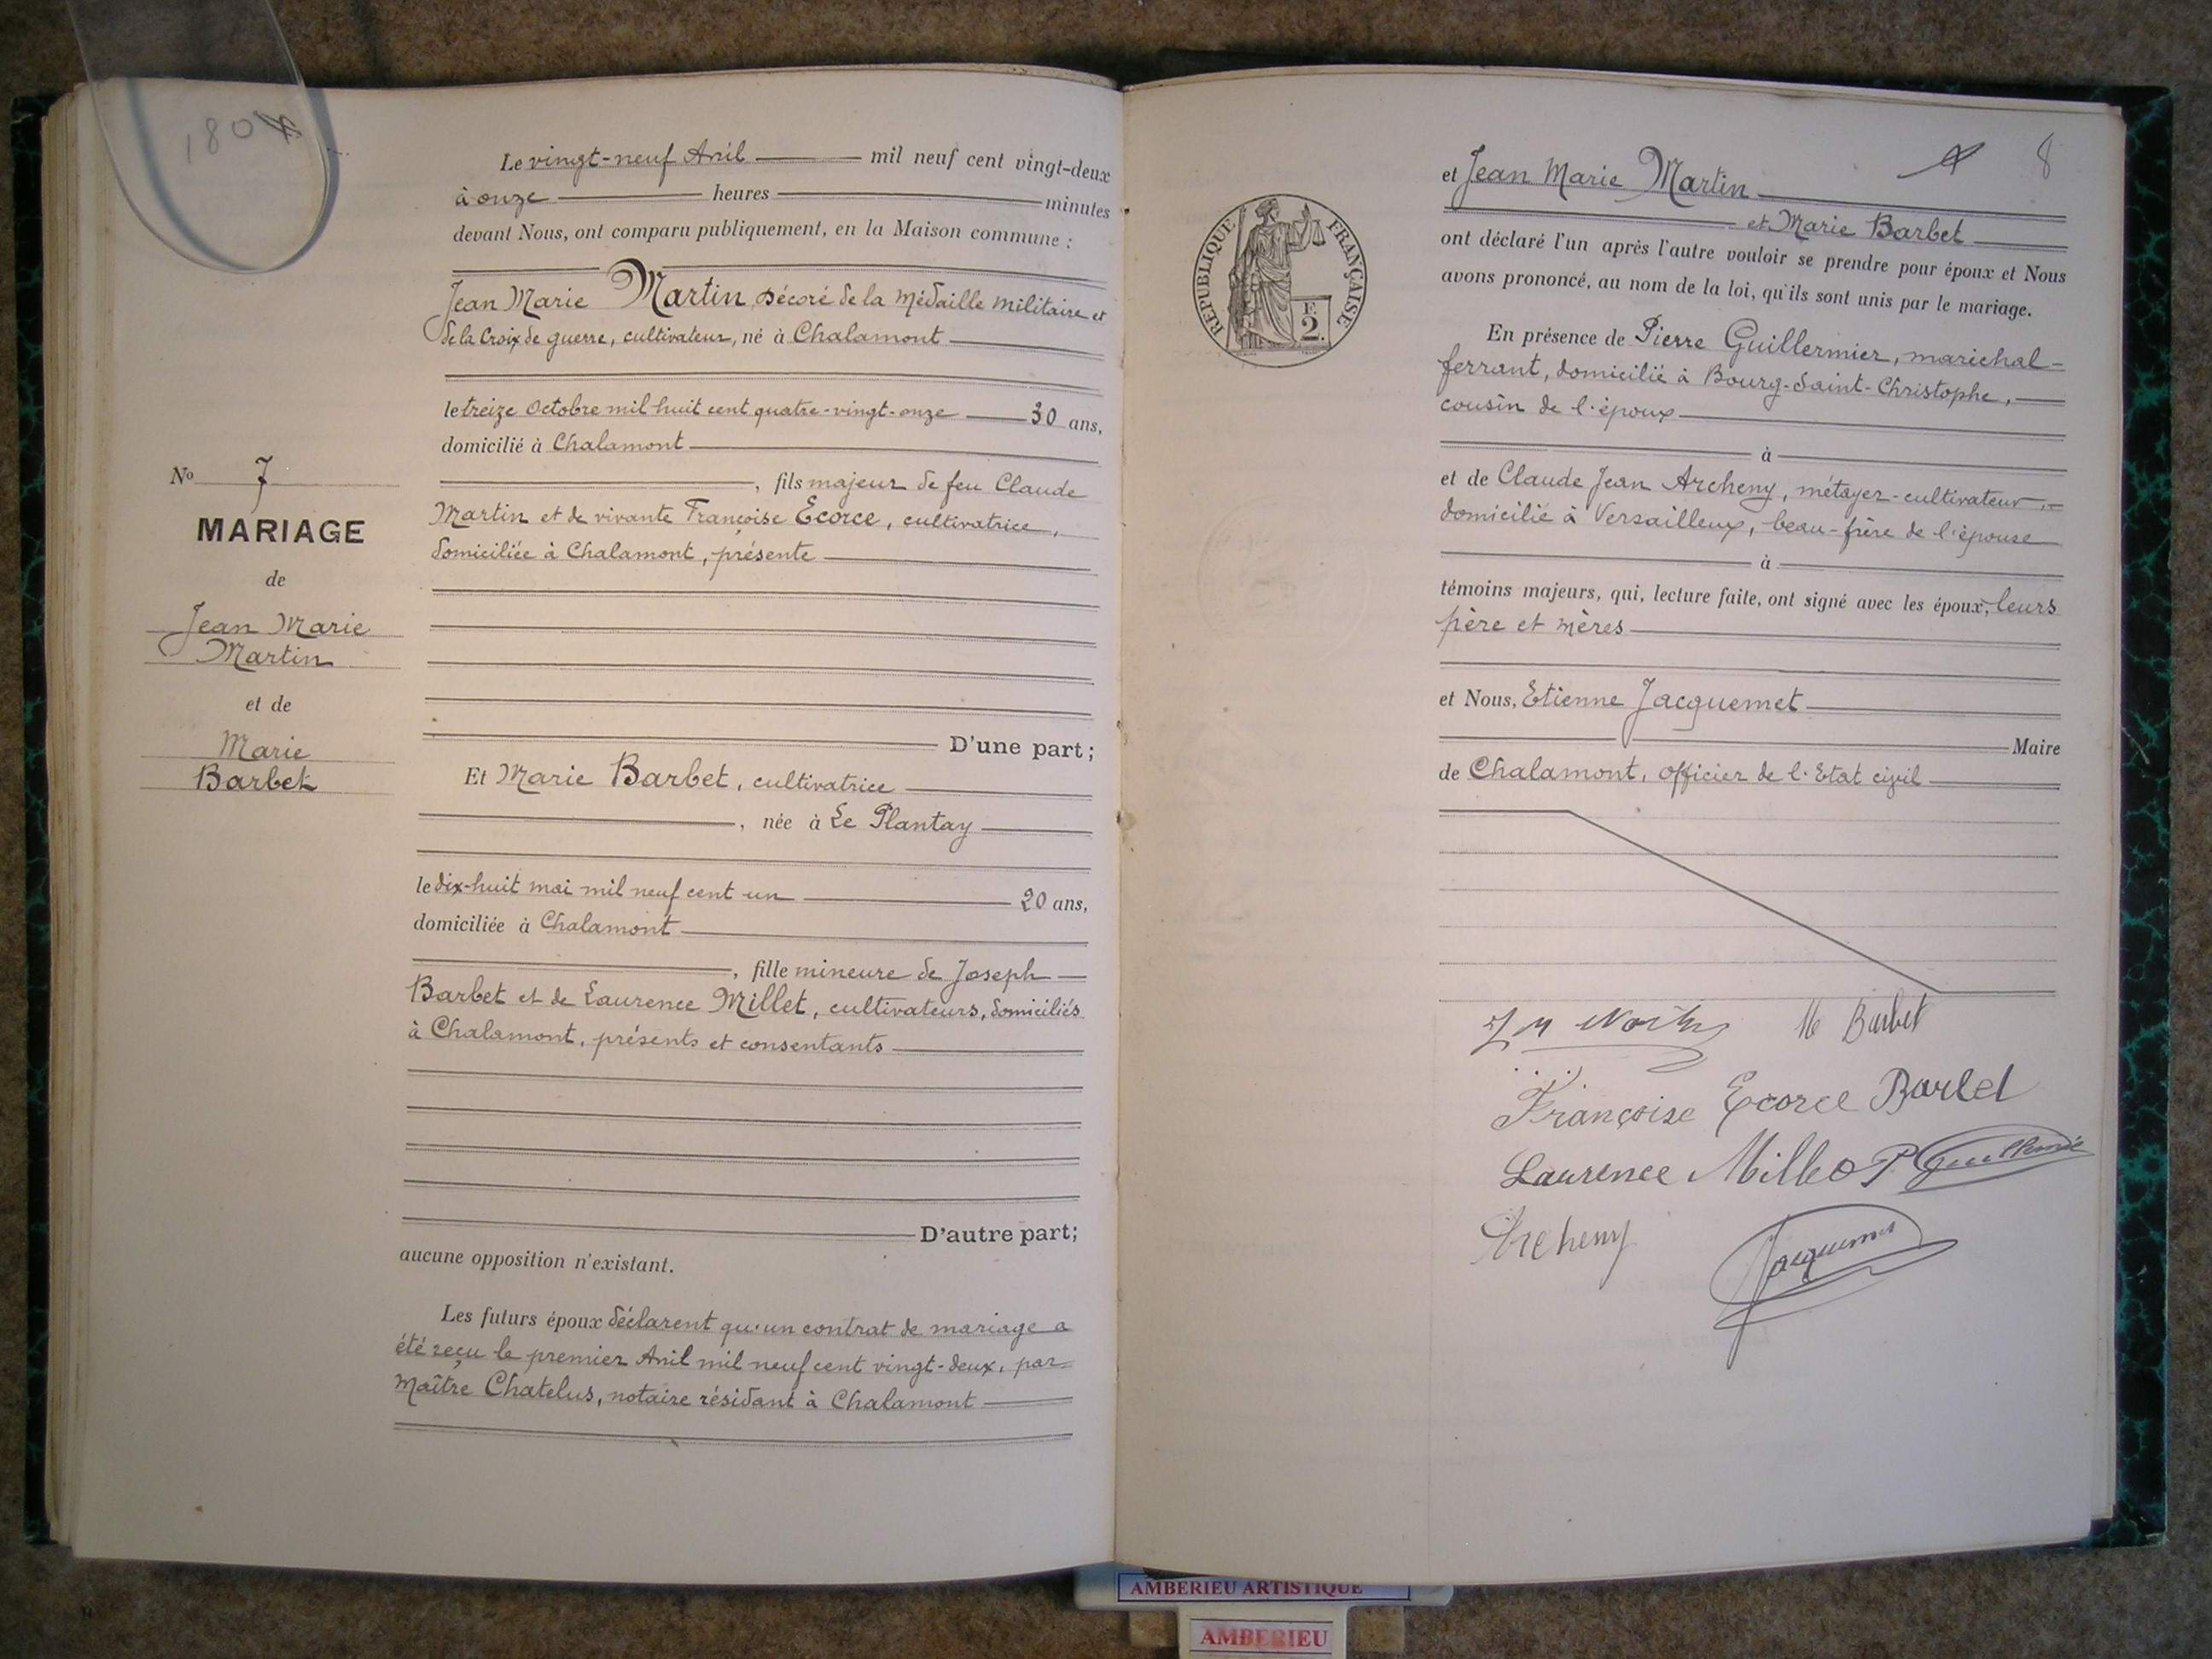 1804
Le vingt-neuf Avril mil neuf cent vingt-deux
à onze heures minutes
devant Nous, ont comparu publiquement, en la Maison commune :
Jean Marie Martin, décoré de la Médaille militaire et
de la Croix de guerre, cultivateur, né à Chalamont
le treize Octobre mil huit cent quatre-vingt-onze 30 ans,
domicilié à Chalamont
, fils majeur de feu Claude
Martin et de vivante Françoise Ecorce, cultivatrice,
domiciliée à Chalamont, présente
D'une part;
Et Marie Barbet, cultivatrice
, née à Le Plantay
le dix-huit mai mil neuf cent un 20 ans,
domiciliée à Chalamont
, fille mineure de Joseph
Barbet et de Laurence Millet, cultivateurs, domiciliés
à Chalamont, présents et consentants
D'autre part;
aucune opposition n'existant.
Les futurs époux déclarent qu'un contrat de mariage a
été reçu le premier Avril mil neuf cent vingt-deux, par
Maître Chatelus, notaire résidant à Chalamont
No 7
MARIAGE
de
Jean Marie
Martin
et de
Marie
Barbet
8
RÉPUBLIQUE FRANÇAISE
E
2.
et Jean Marie Martin
et Marie Barbet
ont déclaré l'un après l'autre vouloir se prendre pour époux et Nous
avons prononcé, au nom de la loi, qu'ils sont unis par le mariage.
En présence de Pierre Guillermier, maréchal-
ferrant, domicilié à Bourg-Saint-Christophe,
cousin de l'époux
à
et de Claude Jean Archeny, métayer-cultivateur,
domicilié à Versailleux, beau-frère de l'épouse
à
témoins majeurs, qui, lecture faite, ont signé avec les époux, leurs
père et mères
et Nous, Etienne Jacquemet
Maire
de Chalamont, officier de l'Etat civil
M Barbet
Françoise Ecorce Barbet
Laurence Millet P Guillermié
Archeny
Jacquemet
AMBERIEU ARTISTIQUE
AMBERIEU